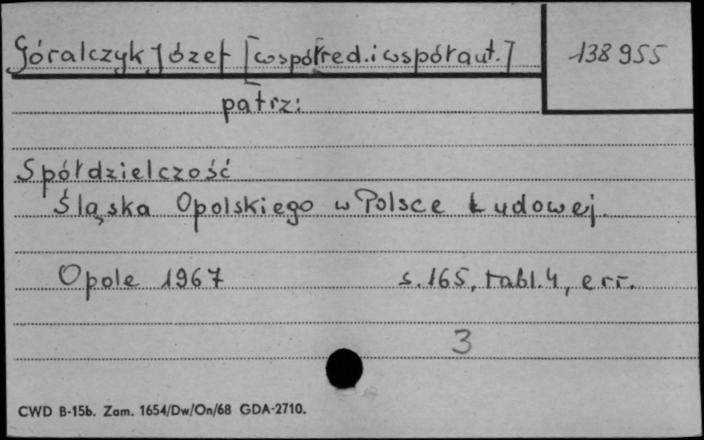 Góralczyk Józef [współred. i współaut.]
138 955
patrz:
Spółdzielczość
Śląska Opolskiego w Polsce Ludowej.
Opole 1967 s. 165, tabl. 4, err.
3
CWD B-15b. Zam. 1654/Dw/On/68 GDA-2710.